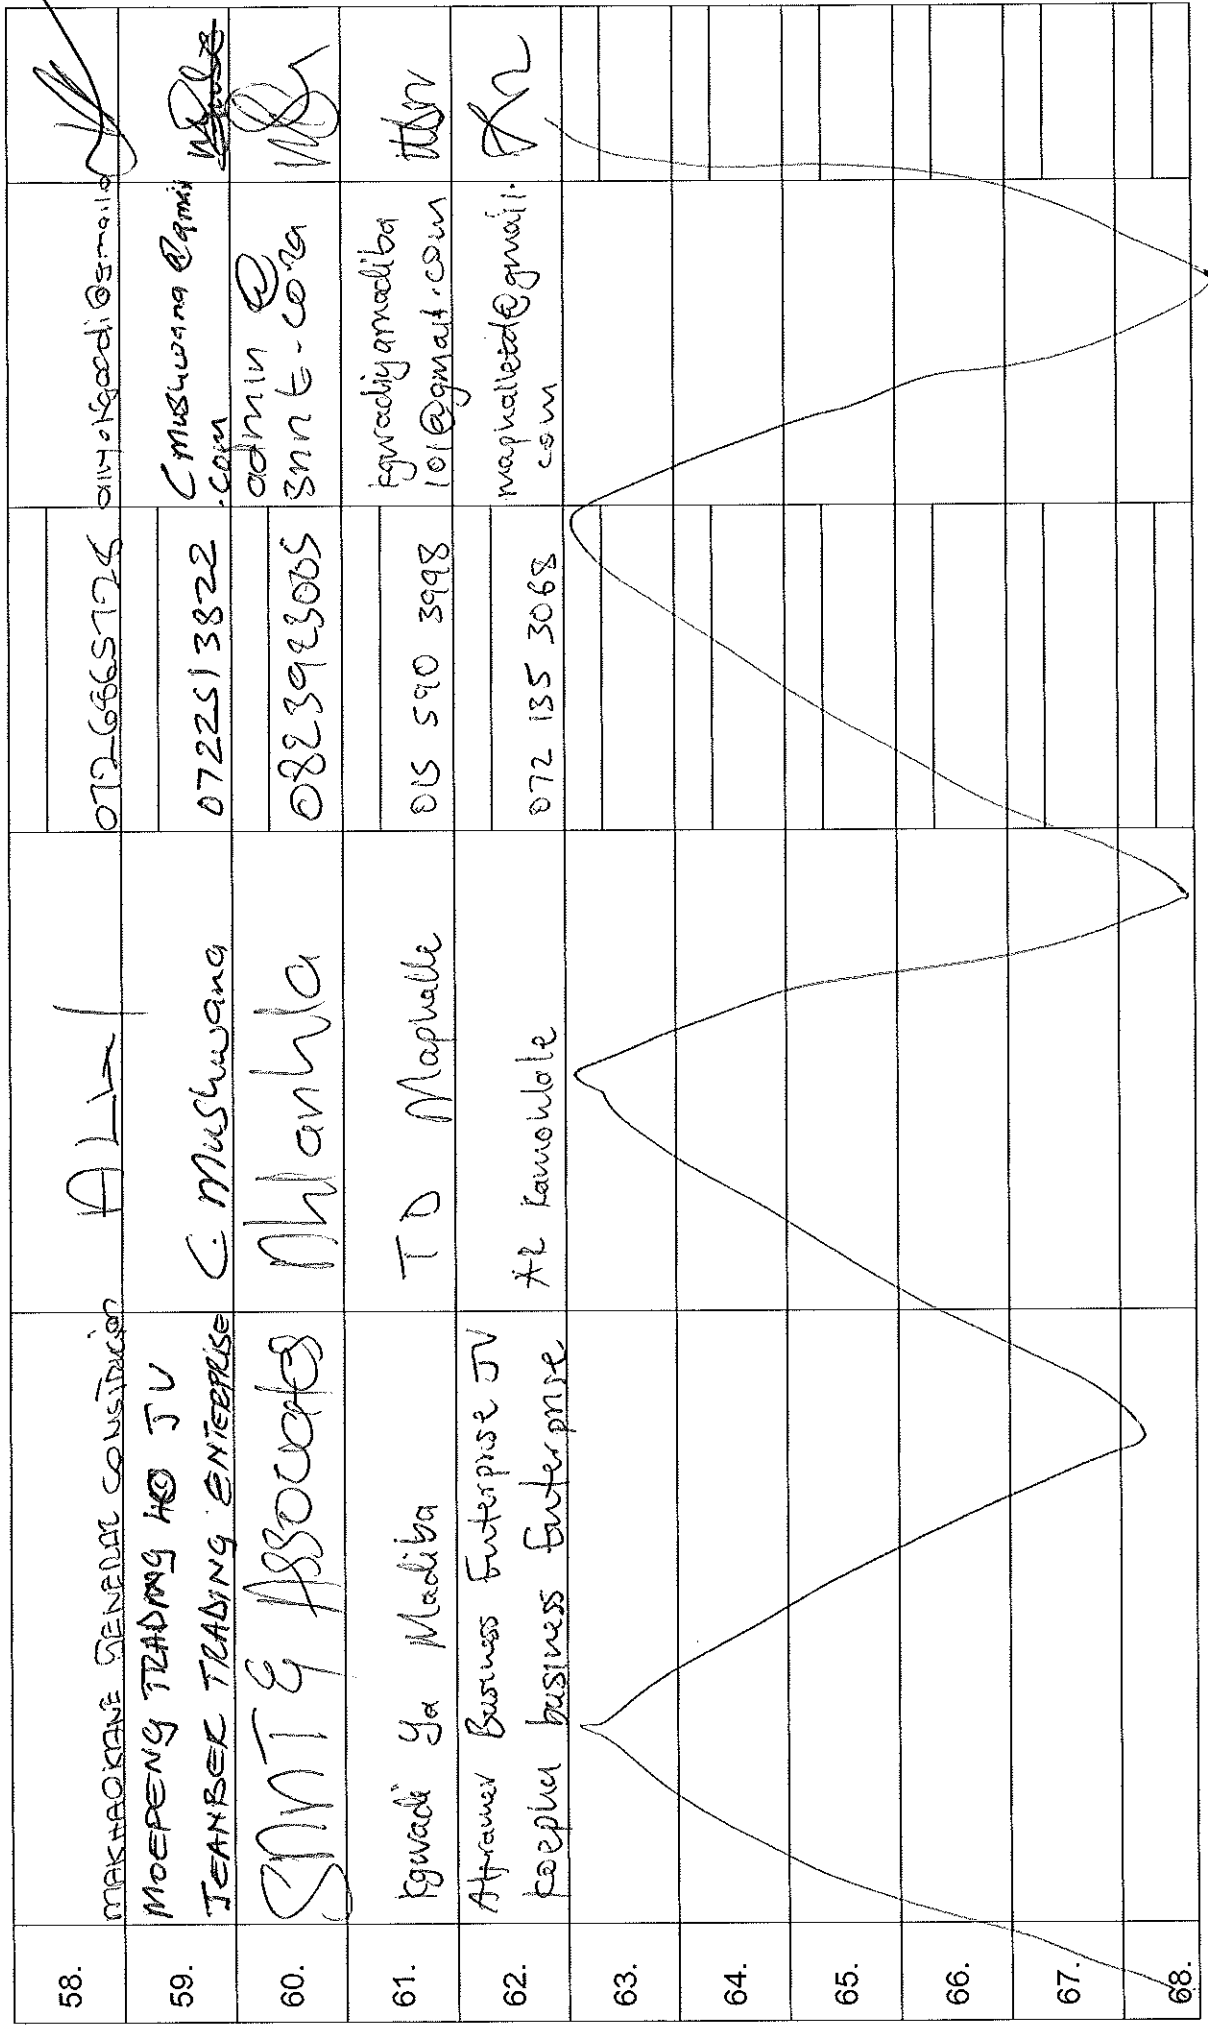 58. MAKHAOKANE GENERAL CONSTRUCION 0726865728
59. MOEPENG TRADING 40 JV
JEANBER TRADING ENTERPRISE C. Mushwang 0722513822 Cmushwana@gmai
.com
60. SMNT & Associates Nhlanhla 0823923005 admin @
61. Kgwadi Ya Madiba TD Maphalle 015 590 3998 kgwadiyamadiba
101@gmail.com
62. Business Enterprise JV
business Enterprise 072 135 3068 maphalletd@gmail.
com
63.
64.
65.
66.
67.
68.